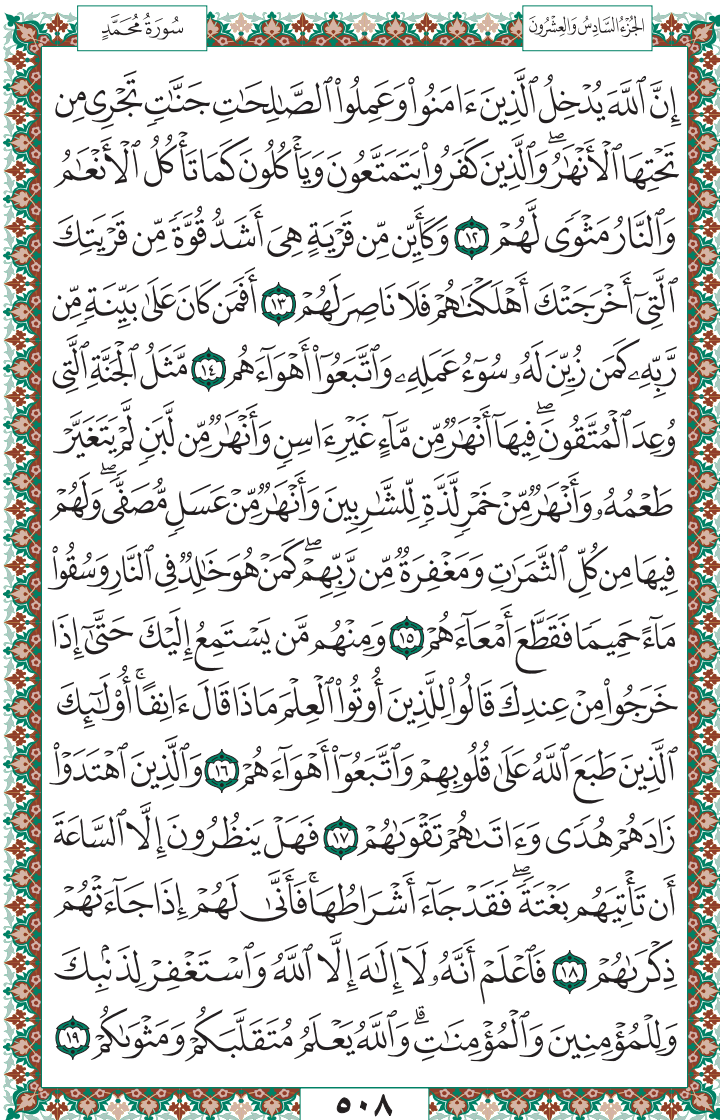 الجزء السادس والعشرون
سورة محمد
إِنَّ ٱللَّهَ يُدْخِلُ ٱلَّذِينَ ءَامَنُوا۟ وَعَمِلُوا۟ ٱلصَّـٰلِحَـٰتِ جَنَّـٰتٍ تَجْرِى مِن
تَحْتِهَا ٱلْأَنْهَـٰرُ ۖ وَٱلَّذِينَ كَفَرُوا۟ يَتَمَتَّعُونَ وَيَأْكُلُونَ كَمَا تَأْكُلُ ٱلْأَنْعَـٰمُ
وَٱلنَّارُ مَثْوًى لَّهُمْ ١٢ وَكَأَيِّن مِّن قَرْيَةٍ هِىَ أَشَدُّ قُوَّةً مِّن قَرْيَتِكَ
ٱلَّتِىٓ أَخْرَجَتْكَ أَهْلَكْنَـٰهُمْ فَلَا نَاصِرَ لَهُمْ ١٣ أَفَمَن كَانَ عَلَىٰ بَيِّنَةٍ مِّن
رَّبِّهِۦ كَمَن زُيِّنَ لَهُۥ سُوٓءُ عَمَلِهِۦ وَٱتَّبَعُوٓا۟ أَهْوَآءَهُم ١٤ مَّثَلُ ٱلْجَنَّةِ ٱلَّتِى
وُعِدَ ٱلْمُتَّقُونَ ۖ فِيهَآ أَنْهَـٰرٌ مِّن مَّآءٍ غَيْرِ ءَاسِنٍ وَأَنْهَـٰرٌ مِّن لَّبَنٍ لَّمْ يَتَغَيَّرْ
طَعْمُهُۥ وَأَنْهَـٰرٌ مِّنْ خَمْرٍ لَّذَّةٍ لِّلشَّـٰرِبِينَ وَأَنْهَـٰرٌ مِّنْ عَسَلٍ مُّصَفًّى ۖ وَلَهُمْ
فِيهَا مِن كُلِّ ٱلثَّمَرَٰتِ وَمَغْفِرَةٌ مِّن رَّبِّهِمْ ۖ كَمَنْ هُوَ خَـٰلِدٌ فِى ٱلنَّارِ وَسُقُوا۟
مَآءً حَمِيمًا فَقَطَّعَ أَمْعَآءَهُمْ ١٥ وَمِنْهُم مَّن يَسْتَمِعُ إِلَيْكَ حَتَّىٰٓ إِذَا
خَرَجُوا۟ مِنْ عِندِكَ قَالُوا۟ لِلَّذِينَ أُوتُوا۟ ٱلْعِلْمَ مَاذَا قَالَ ءَانِفًا ۚ أُو۟لَـٰٓئِكَ
ٱلَّذِينَ طَبَعَ ٱللَّهُ عَلَىٰ قُلُوبِهِمْ وَٱتَّبَعُوٓا۟ أَهْوَآءَهُمْ ١٦ وَٱلَّذِينَ ٱهْتَدَوْا۟
زَادَهُمْ هُدًى وَءَاتَىٰهُمْ تَقْوَىٰهُمْ ١٧ فَهَلْ يَنظُرُونَ إِلَّا ٱلسَّاعَةَ
أَن تَأْتِيَهُم بَغْتَةً ۖ فَقَدْ جَآءَ أَشْرَاطُهَا ۚ فَأَنَّىٰ لَهُمْ إِذَا جَآءَتْهُمْ
ذِكْرَىٰهُمْ ١٨ فَٱعْلَمْ أَنَّهُۥ لَآ إِلَـٰهَ إِلَّا ٱللَّهُ وَٱسْتَغْفِرْ لِذَنۢبِكَ
وَلِلْمُؤْمِنِينَ وَٱلْمُؤْمِنَـٰتِ ۗ وَٱللَّهُ يَعْلَمُ مُتَقَلَّبَكُمْ وَمَثْوَىٰكُمْ ١٩
٥٠٨